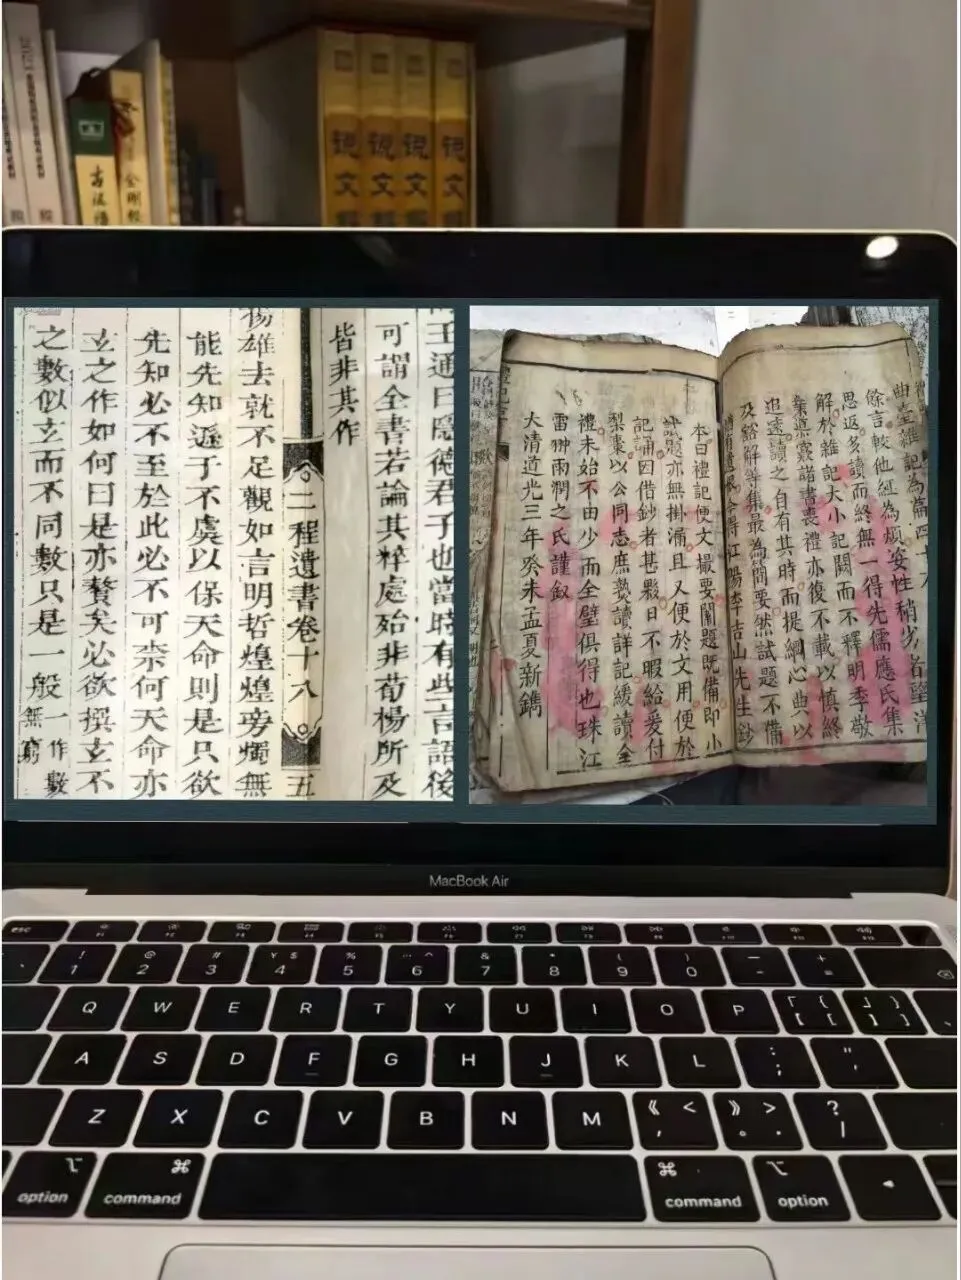 说文
说文
说文
说文
古汉语
金刚经
王通曰隱德君子也當時有些言語後
可謂全書若論其粹處殆非荀楊所及
皆非其作
二程遺書卷十八 五
楊雄去就不足觀如言明哲煌煌旁燭無
能先知遜于不虞以保天命則是只欲
先知必不至於此必不可柰何天命亦
玄之作如何曰是亦贅矣必欲撰玄不
之數似玄而不同數只是一般一作數無窮
曲臺雜記為篇四十
餘言較他經為煩姿性稍劣者望洋
思返多讀而終無一得先儒應氏集
解於雜記大小記闕而不釋明季敬
諸書喪禮亦復不載以慎終
追遠讀之自有其時而提綱心典以
及解等集最為簡要然試題不備
今得江陽李吉山先生鈔
本曰禮記便文撮要闈題既備即小
試題亦無掛漏且又便於文用便於
記誦因借鈔者甚夥日不暇給爰付
梨棗以公同志庶熟讀詳記緩讀全
禮未始不由少而全璧俱得也珠江
雷翀雨潤之氏謹叙
大清道光三年癸未孟夏新鐫
MacBook Air
esc
! 1 @ 2 # 3 ¥ $ 4 % 5 …… ^ 6 & 7 * 8 ( 9 ) 0 — - + =
Q W E R T Y U I O P 「 { 【 [ 」 } 】 ]
A S D F G H J K L : ; " '
Z X C V B N M 《 < , 》 > 。 . ? /
option command command option